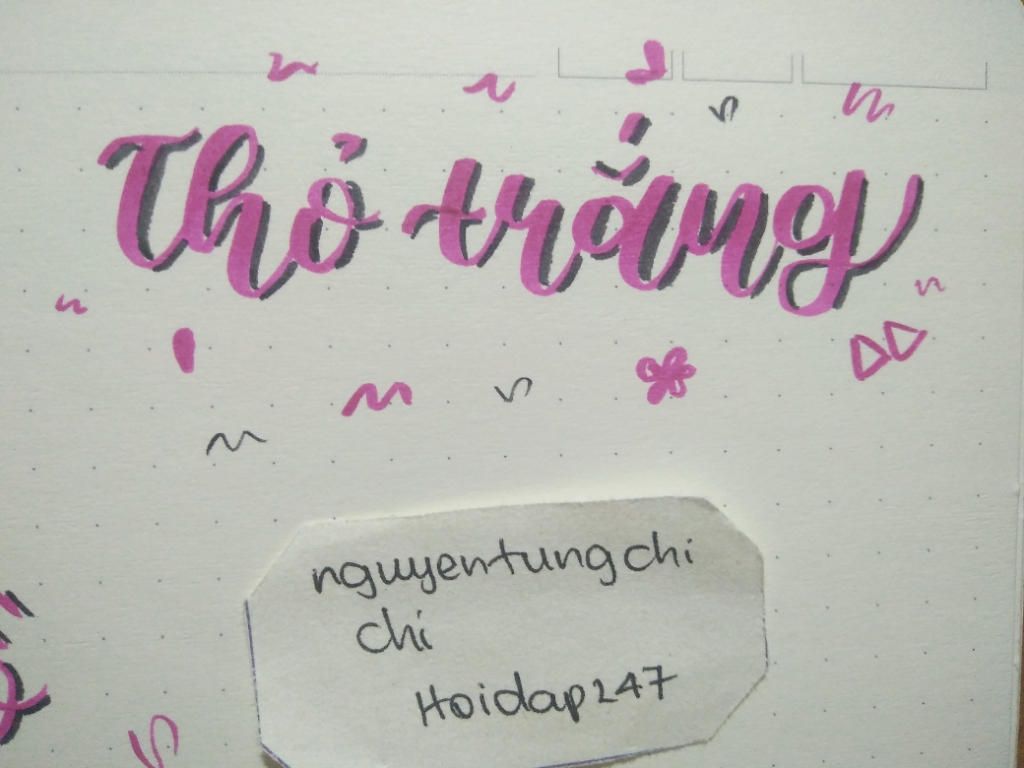 Thỏ trắng
nguyentungchi
chi
Hoidap247